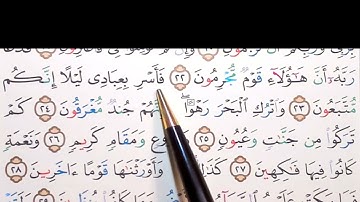 رَبَّهُۥٓ أَنَّ هَٰٓؤُلَآءِ قَوْمٌ مُّجْرِمُونَ ٢٢ فَأَسْرِ بِعِبَادِى لَيْلًا إِنَّكُم
مُّتَّبَعُونَ ٢٣ وَٱتْرُكِ ٱلْبَحْرَ رَهْوًا إِنَّهُمْ جُندٌ مُّغْرَقُونَ ٢٤ كَمْ
تَرَكُوا۟ مِن جَنَّٰتٍ وَعُيُونٍ ٢٥ وَمَقَامٍ كَرِيمٍ ٢٦ وَنَعْمَةٍ
كَانُوا۟ فِيهَا فَٰكِهِينَ ٢٧ وَأَوْرَثْنَٰهَا قَوْمًا ءَاخَرِينَ ٢٨